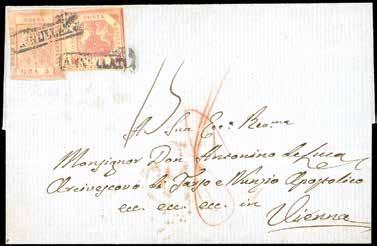 POSTA
POSTA
ANNULLATO
ANNULLATO
15
A Sua Ecc.ª Rev.ma
Monsignor Don Antonino de Luca
Arcivescovo di Tarso e Nunzio Apostolico
ecc. ecc. ecc. in
Vienna